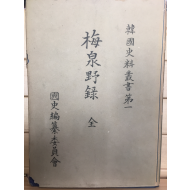 韓國史料叢書第一
梅泉野録 全
國史編纂委員會